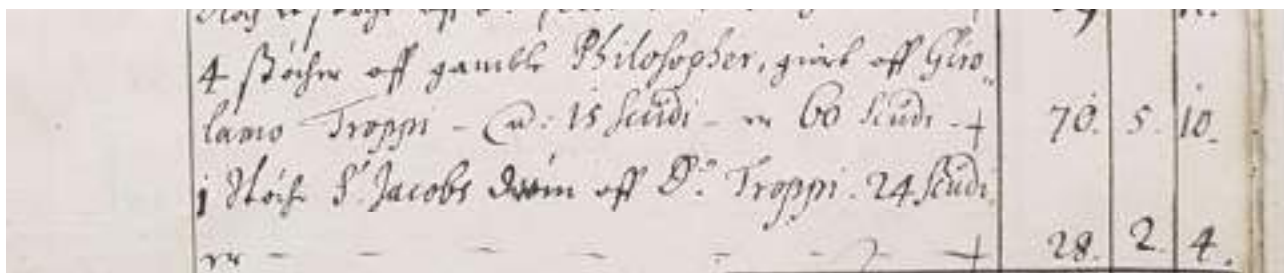 4 støcher aff gamble Philosopher, giort aff Giro-
lamo Troppi - @: 15 scudi - er 60 scudi - + 70. 5. 10.
1 støche St. Jacobs drøm aff Do. Troppi. 24 scudi
er - - - - - - + 28. 2. 4.